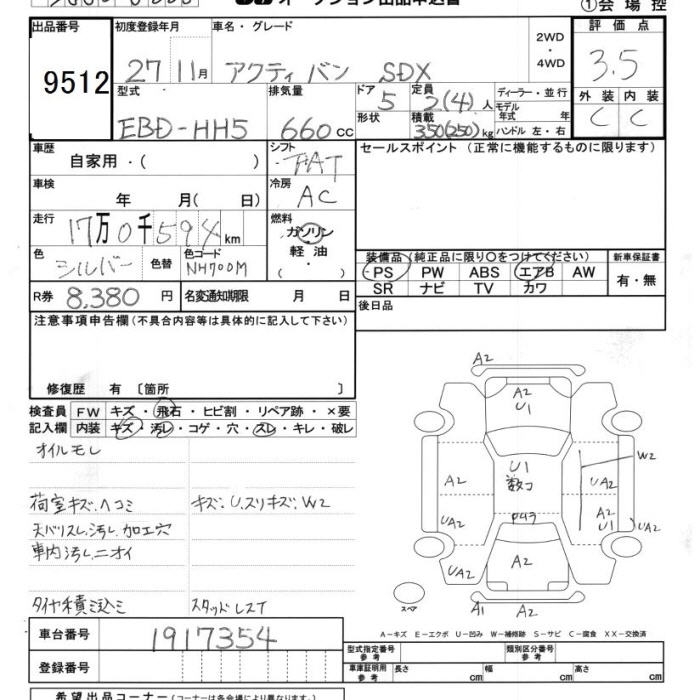 ①会場控
出品番号
9512
初度登録年月
27 11月
車名・グレード
アクティ バン SDX
2WD
・
4WD
評価点
3.5
外装 内装
C C
型式
EBD-HH5
排気量
660 cc
ドア
5
形状
定員
2(4)人
積載
350(250)kg
ディーラー・並行
モデル
年式 年
ハンドル 左・右
車歴
自家用・( )
シフト
FAT
セールスポイント (正常に機能するものに限ります)
車検
年 月(日)
冷房
AC
走行
17万0千594km
燃料
ガソリン
・
軽油
・
( )
色
シルバー
色替
色コード
NH700M
装備品(純正品に限り○をつけてください)
PS PW ABS エアB AW
SR ナビ TV カワ
新車保証書
有・無
R券 8,380円
名変通知期限 月 日
後日品
注意事項申告欄(不具合内容等は具体的に記入して下さい)
修復歴 有〔箇所 〕
検査員 FW キズ・飛石・ヒビ割・リペア跡・×要
記入欄 内装 キズ・汚レ・コゲ・穴・スレ・キレ・破レ
オイルモレ
荷室キズ、ヘコミ
キズ、U、スリキズ、W2
天バリスレ、汚レ、加工穴
車内汚レ、ニオイ
タイヤ積ミ込ミ
スタッドレスT
A2
A2
U1
U1
数コ
W2
A2
UA2
UA2
A2
U1
UA2
A2
UA2
UA2
A1 A2
スペア
A-キズ E-エクボ U-凹み W-補修跡 S-サビ C-腐食 XX-交換済
車台番号
1917354
登録番号
型式指定番号
参考
類別区分番号
参考
車庫証明用
参考
長さ cm 幅 cm 高さ cm
希望出品コーナー